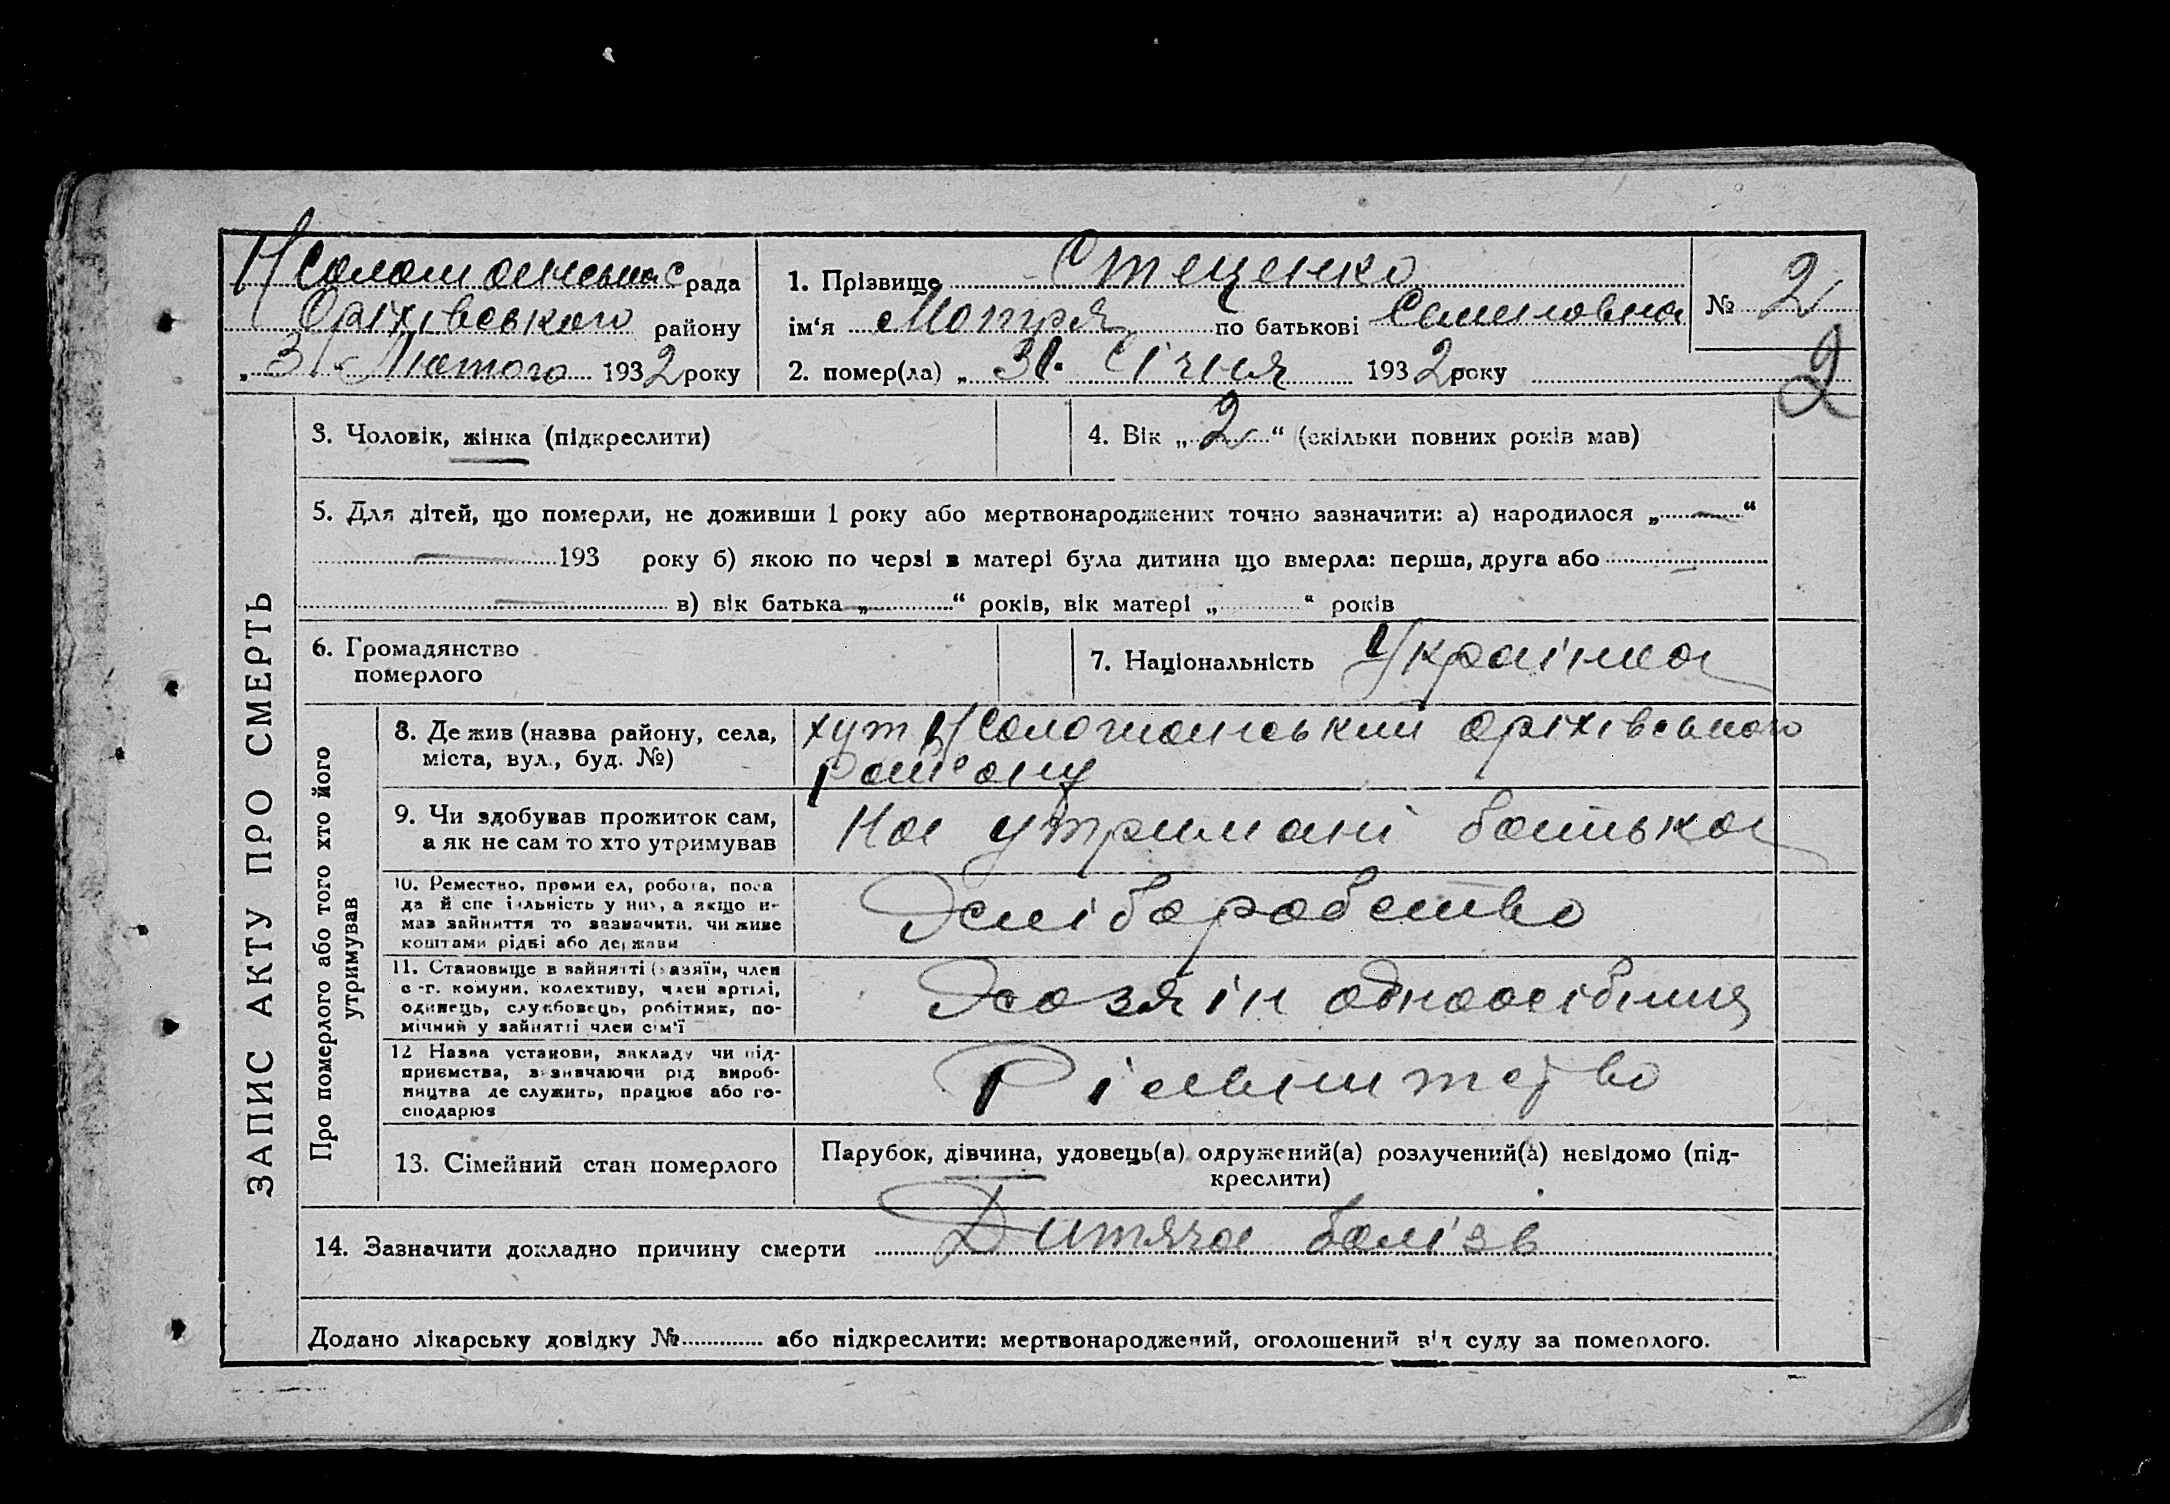 рада
Оріхівського району
„3“ Лютого 1932 року
1. Прізвище Стеценко
ім'я Мотря по батькові
2. помер(ла) „31“ Січня 1932 року
№ 2
2
ЗАПИС АКТУ ПРО СМЕРТЬ
3. Чоловік, жінка (підкреслити)
4. Вік „2“ (скільки повних років мав)
5. Для дітей, що померли, не доживши 1 року або мертвонароджених точно зазначити: а) народилося „—“
— 193 року б) якою по черзі в матері була дитина що вмерла: перша, друга або
— в) вік батька „ “ років, вік матері „ “ років
6. Громадянство
померлого
7. Національність Українка
Про померлого або того хто його
утримував
8. Де жив (назва району, села,
міста, вул., буд. №)
хут Оріхівського
району
9. Чи здобував прожиток сам,
а як не сам то хто утримував
На утримані батька
10. Ремество, промисел, робота, поса
да й спеціяльність у них, а якщо н-
мав зайняття то зазначити, чи живе
коштами рідні або держави
Хліборобство
11. Становище в зайнятті (хазяїн, член
с.-г. комуни, колективу, член артілі,
одинець, службовець, робітник, по-
мічний у зайнятті член сім'ї
Хозяін
12 Назва установи, закладу чи під-
приємства, зазначаючи рід вироб-
ництва де служить, працює або го-
сподарює
13. Сімейний стан померлого
Парубок, дівчина, удовець(а) одружений(а) розлучений(а) невідомо (під-
креслити)
14. Зазначити докладно причину смерти Дитяча
Додано лікарську довідку № або підкреслити: мертвонароджений, оголошений від суду за померлого.